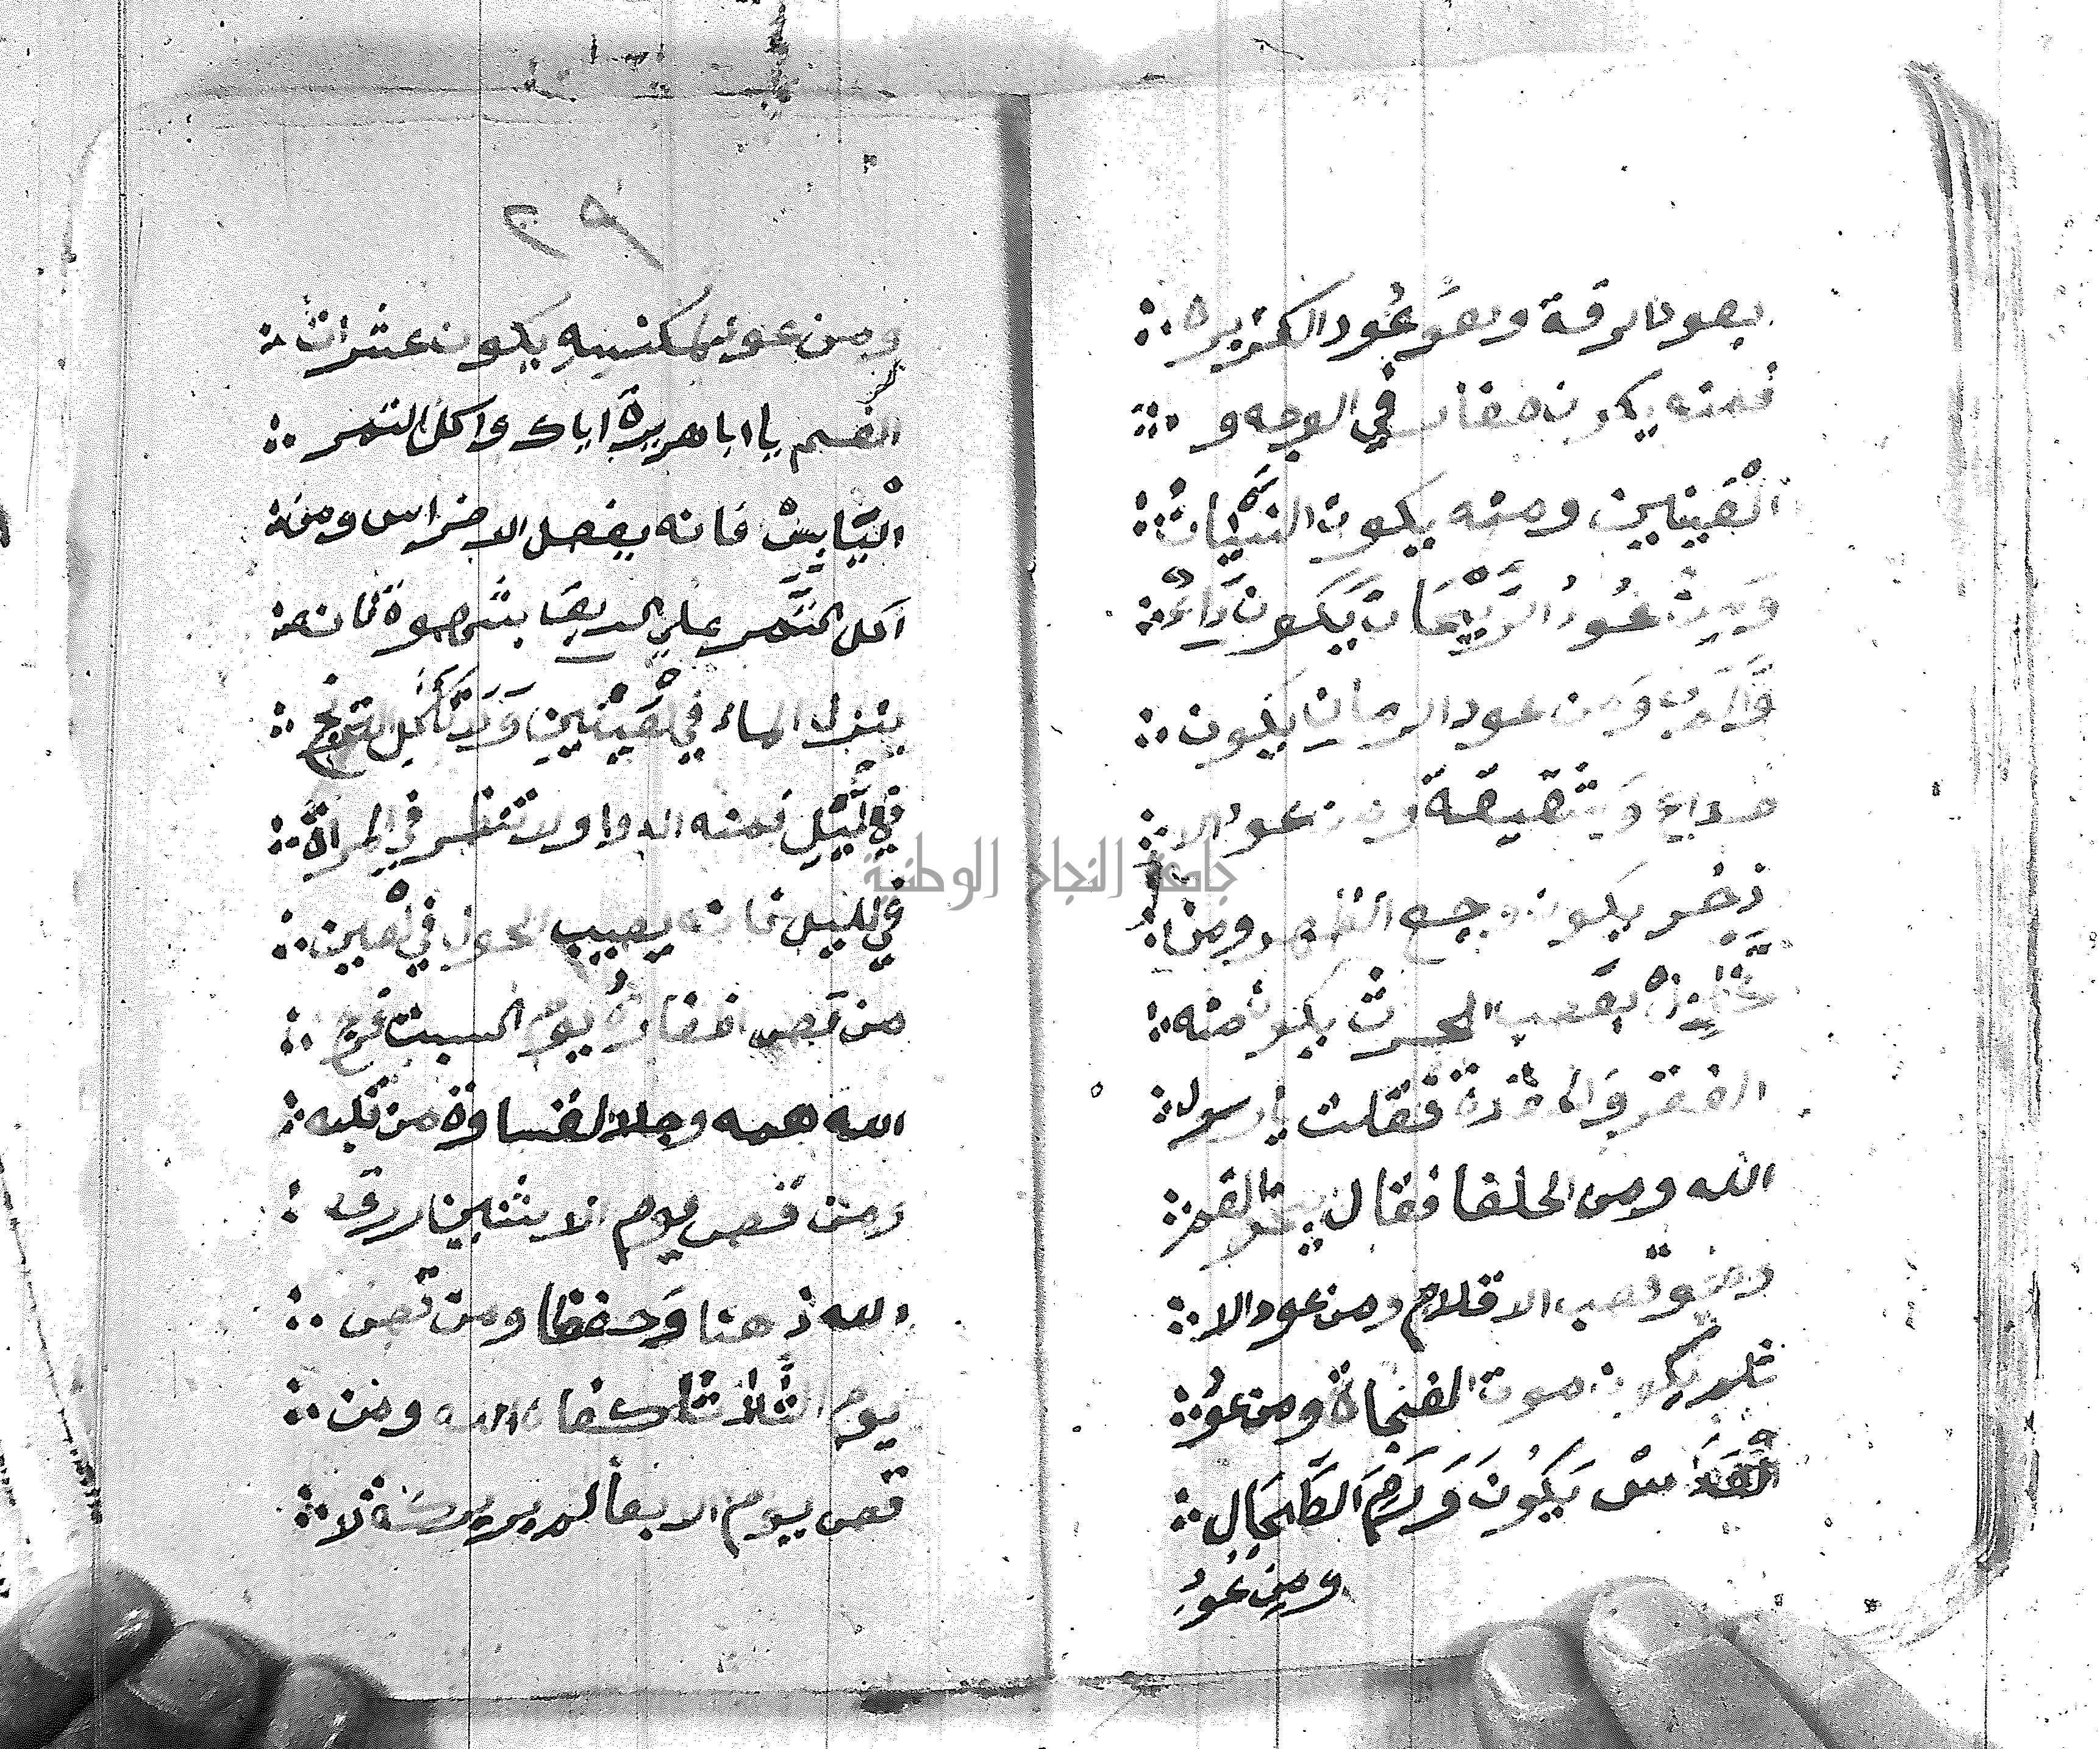 يعود الرقة وهو عود الكزبره
فمنه يكون في الوجه و
العينين ومنه يكون النسيان
ومن عود الريحان يكون داء
ومن عود الرمان يكون
صداع وشقيقة ومن عود الا
ذخر يكون وجع الظهر ومن
تخلل بقصب الحرث يكون منه
الفقر فقلت يا رسول
الله ومن الحلفا فقال
قصب الاقلام ومن عود الا
ثل يكون موت الفجاة ومن عو
يكون ورم الطحال
ومن عود
٢٩
ومن عود المكنسه يكون عشرات
الفم يا ابا هريرة اياك واكل التمر
اليابس فانه يفصل الاضراس ومن
اكل التمر علي الريق بشهوة فانه
ينزل الماء في لعينين ولا تاكل
في ليل فمنه الدوا ولا تنظر في المراة
في لليل فانه يصيب الحول في لعين
من قص اظفاره يوم السبت فرج
الله همه وجلا لقساوة من قلبه
ومن قص يوم الاثنين ارزقه
الله ذهنا وحفظا ومن قص
يوم الثلاثا كفاه الله ومن
قص يوم الاربعا لم ير بركة لا
جامعة النجاح الوطنية